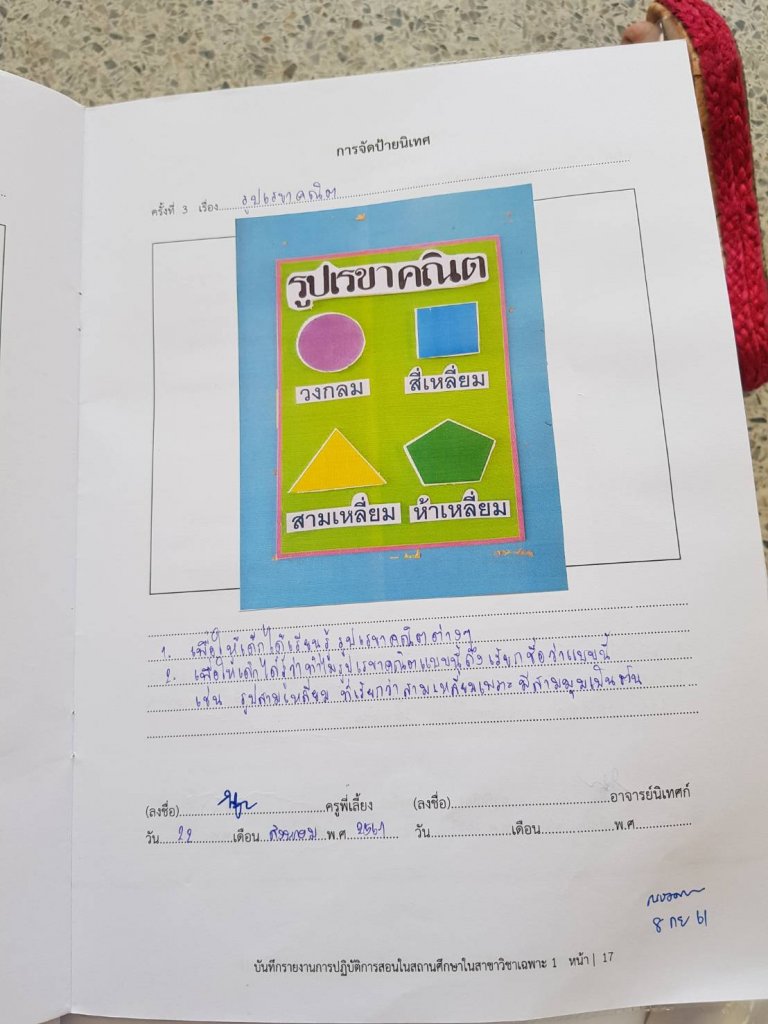 การจัดป้ายนิเทศ
ครั้งที่ 3 เรื่อง รูปเรขาคณิต
รูปเรขาคณิต
วงกลม สี่เหลี่ยม
สามเหลี่ยม ห้าเหลี่ยม
1. เพื่อให้เด็กได้เรียนรู้ รูปเรขาคณิตต่างๆ
2. เพื่อให้เด็กได้รู้ว่าทำไมรูปเรขาคณิตแบบนี้ถึงเรียกชื่อว่าแบบนี้
เช่น รูปสามเหลี่ยม ที่เรียกว่าสามเหลี่ยมเพราะ มีสามมุมเป็นต้น
(ลงชื่อ)..............................ครูพี่เลี้ยง (ลงชื่อ)..............................อาจารย์นิเทศก์
วัน 22 เดือน สิงหาคม พ.ศ 2561 วัน..............เดือน..............พ.ศ..............
8 กย 61
บันทึกรายงานการปฏิบัติการสอนในสถานศึกษาในสาขาวิชาเฉพาะ 1 หน้า | 17